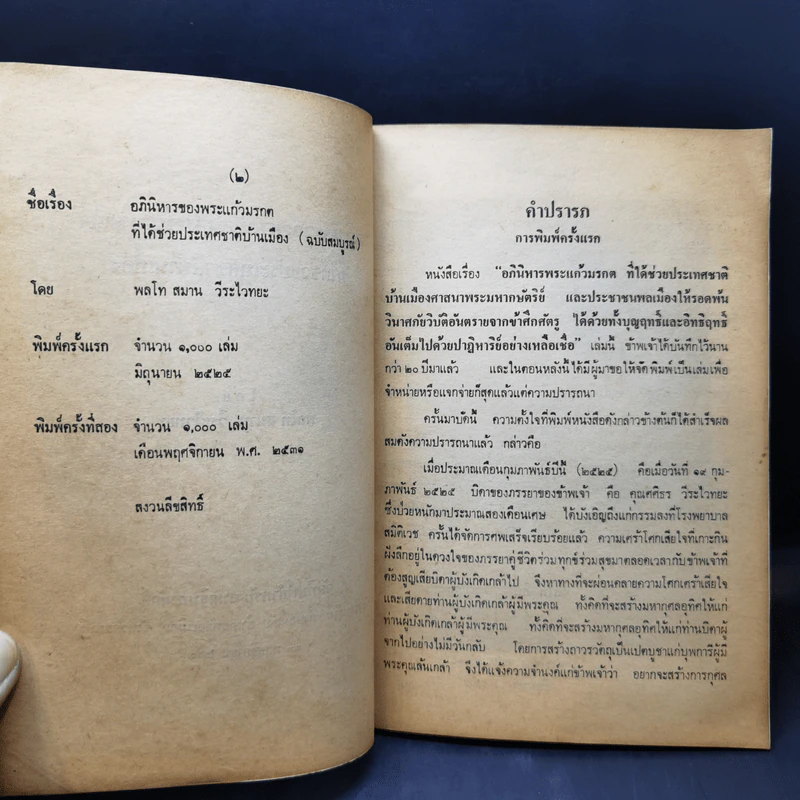 (๒)
ชื่อเรื่อง อภินิหารของพระแก้วมรกต
ที่ได้ช่วยประเทศชาติบ้านเมือง (ฉบับสมบูรณ์)
โดย พลโท สมาน วีระไวทยะ
พิมพ์ครั้งแรก จำนวน ๑,๐๐๐ เล่ม
มิถุนายน ๒๕๒๕
พิมพ์ครั้งที่สอง จำนวน ๑,๐๐๐ เล่ม
เดือนพฤศจิกายน พ.ศ. ๒๕๓๑
สงวนลิขสิทธิ์
คำปรารภ
การพิมพ์ครั้งแรก
หนังสือเรื่อง "อภินิหารพระแก้วมรกต ที่ได้ช่วยประเทศชาติ
บ้านเมืองศาสนาพระมหากษัตริย์ และประชาชนพลเมืองให้รอดพ้น
วินาศภัยวิบัติอันตรายจากข้าศึกศัตรู ได้ด้วยทั้งบุญฤทธิ์และอิทธิฤทธิ์
อันเต็มไปด้วยปาฏิหาริย์อย่างเหลือเชื่อ" เล่มนี้ ข้าพเจ้าได้บันทึกไว้นาน
กว่า ๒๐ ปีมาแล้ว และในตอนหลังนี้ได้มีผู้มาขอให้จัดพิมพ์เป็นเล่มเพื่อ
จำหน่ายหรือแจกจ่ายก็สุดแล้วแต่ความปรารถนา
ครั้นมาบัดนี้ ความตั้งใจที่พิมพ์หนังสือดังกล่าวข้างต้นก็ได้สำเร็จผล
สมดังความปรารถนาแล้ว กล่าวคือ
เมื่อประมาณเดือนกุมภาพันธ์ปีนี้ (๒๕๒๕) คือเมื่อวันที่ ๑๙ กุม-
ภาพันธ์ ๒๕๒๕ บิดาของภรรยาของข้าพเจ้า คือ คุณศศิธร วีระไวทยะ
ซึ่งป่วยหนักมาประมาณสองเดือนเศษ ได้บังเอิญถึงแก่กรรมลงที่โรงพยาบาล
สมิติเวช ครั้นได้จัดการศพเสร็จเรียบร้อยแล้ว ความเศร้าโศกเสียใจที่เกาะกิน
ฝังลึกอยู่ในดวงใจของภรรยาคู่ชีวิตร่วมทุกข์ร่วมสุขมาตลอดเวลากับข้าพเจ้าที่
ต้องสูญเสียบิดาผู้บังเกิดเกล้าไป จึงหาทางที่จะผ่อนคลายความโศกเศร้าเสียใจ
และเสียดายท่านผู้บังเกิดเกล้าผู้มีพระคุณ ทั้งคิดที่จะสร้างมหากุศลอุทิศให้แก่
ท่านผู้บังเกิดเกล้าผู้มีพระคุณ ทั้งคิดที่จะสร้างมหากุศลอุทิศให้แก่ท่านบิดาผู้
จากไปอย่างไม่มีวันกลับ โดยการสร้างถาวรวัตถุเป็นเปตบูชาแก่บุพการีผู้มี
พระคุณล้นเกล้า จึงได้แจ้งความจำนงค์แก่ข้าพเจ้าว่า อยากจะสร้างการกุศล